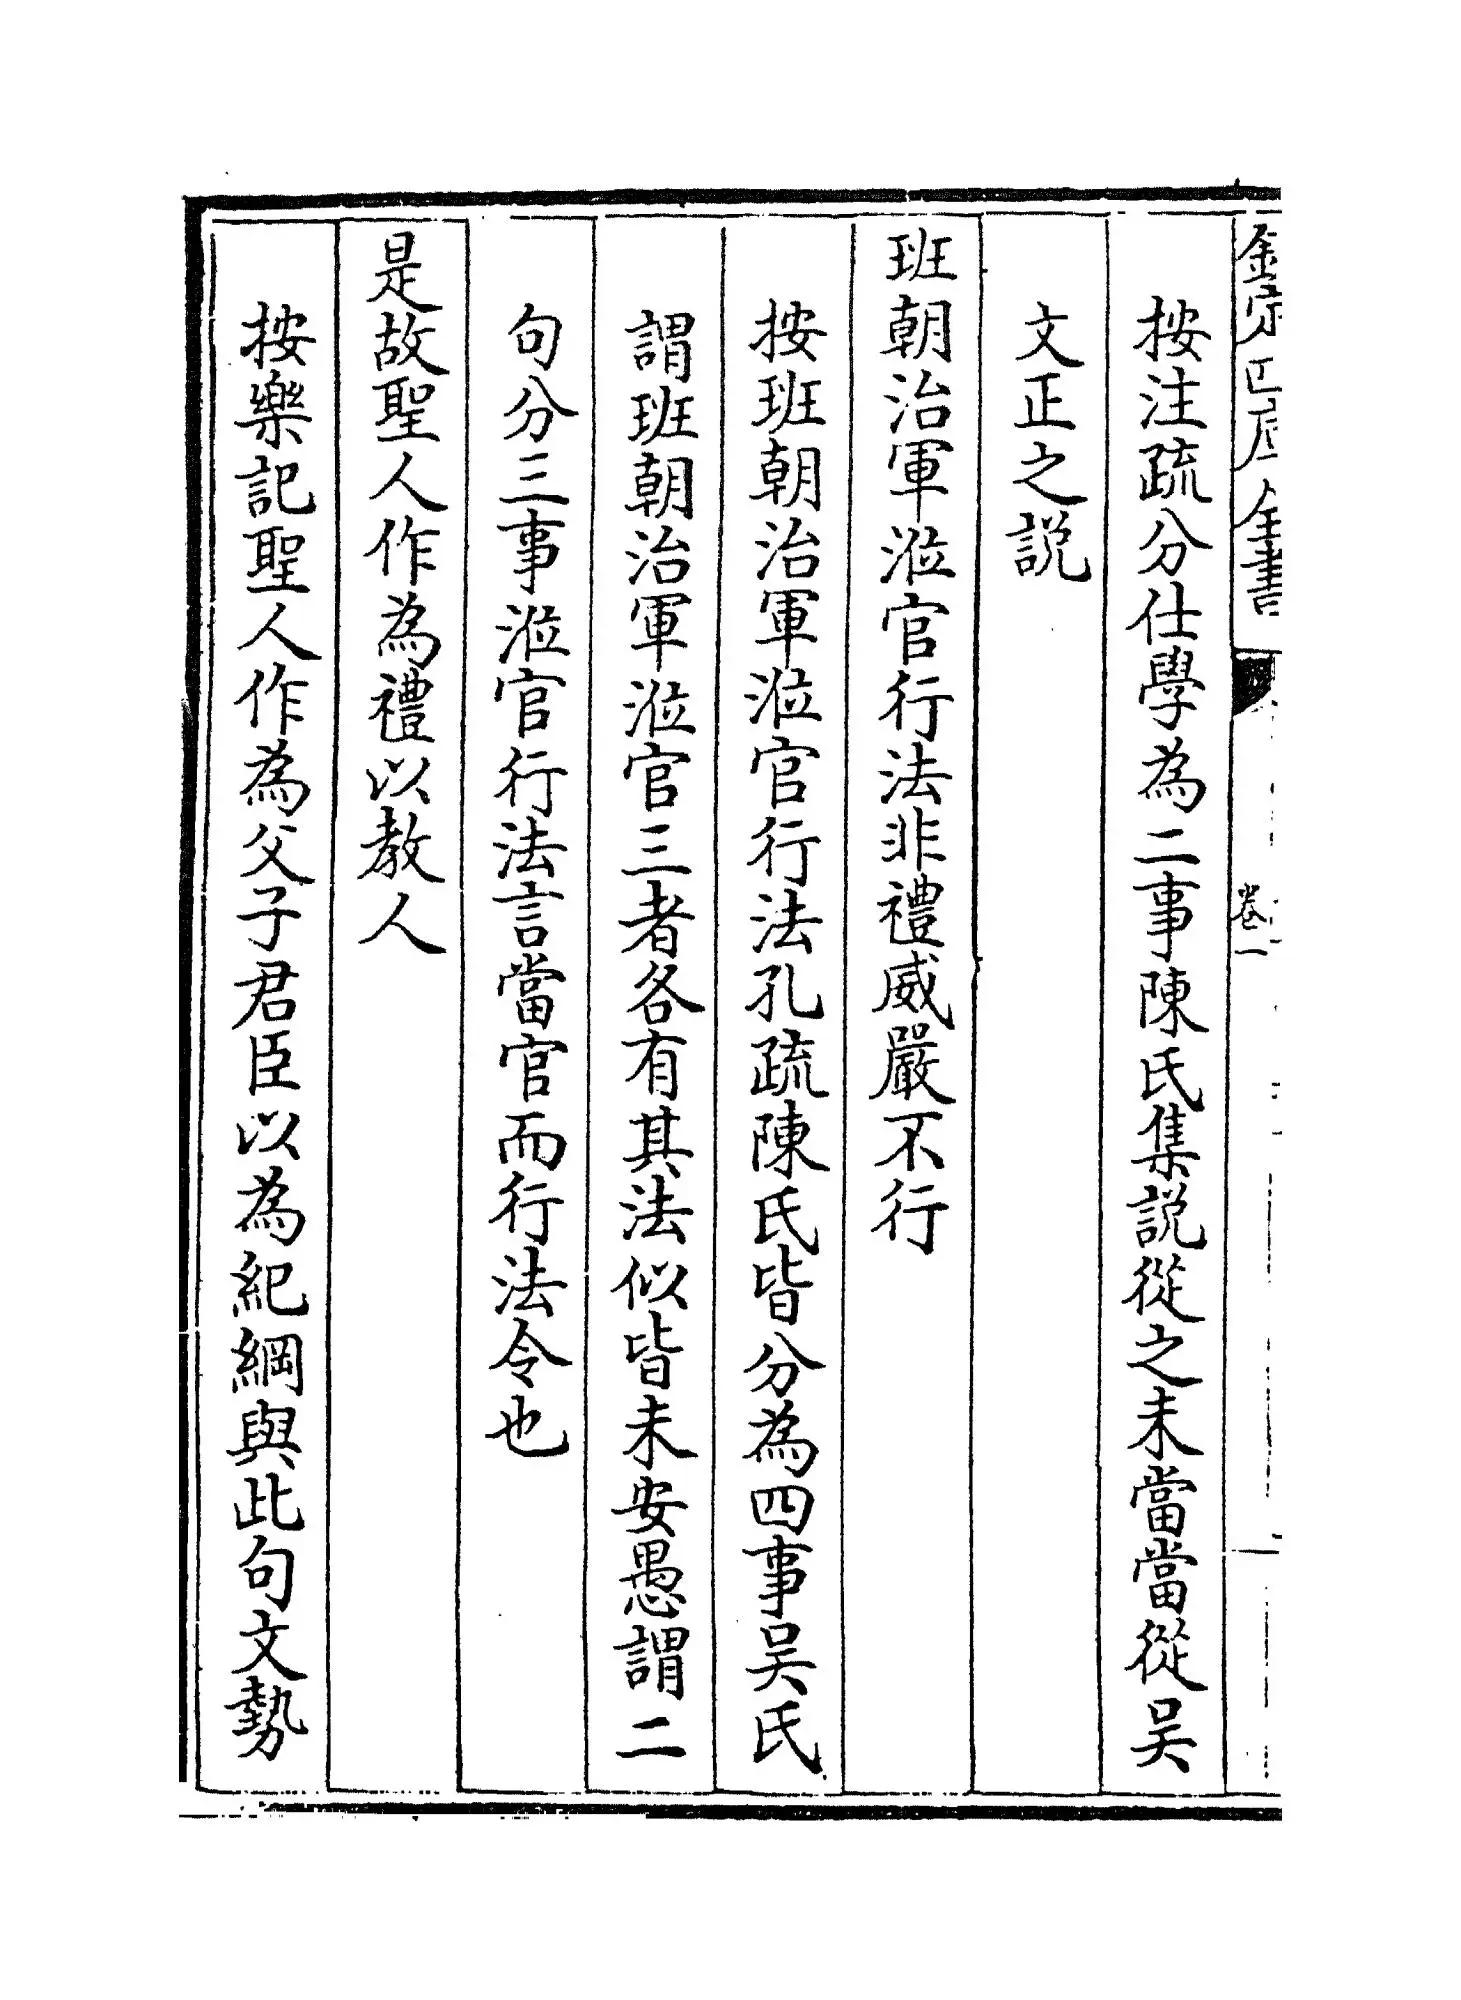 按注疏分仕學為二事陳氏集説從之未當當從吴
文正之説
班朝治軍涖官行法非禮威嚴不行
按班朝治軍涖官行法孔疏陳氏皆分為四事吴氏
謂班朝治軍涖官三者各有其法似皆未安愚謂二
句分三事涖官行法言當官而行法令也
是故聖人作為禮以教人
按樂記聖人作為父子君臣以為紀綱與此句文勢
卷一